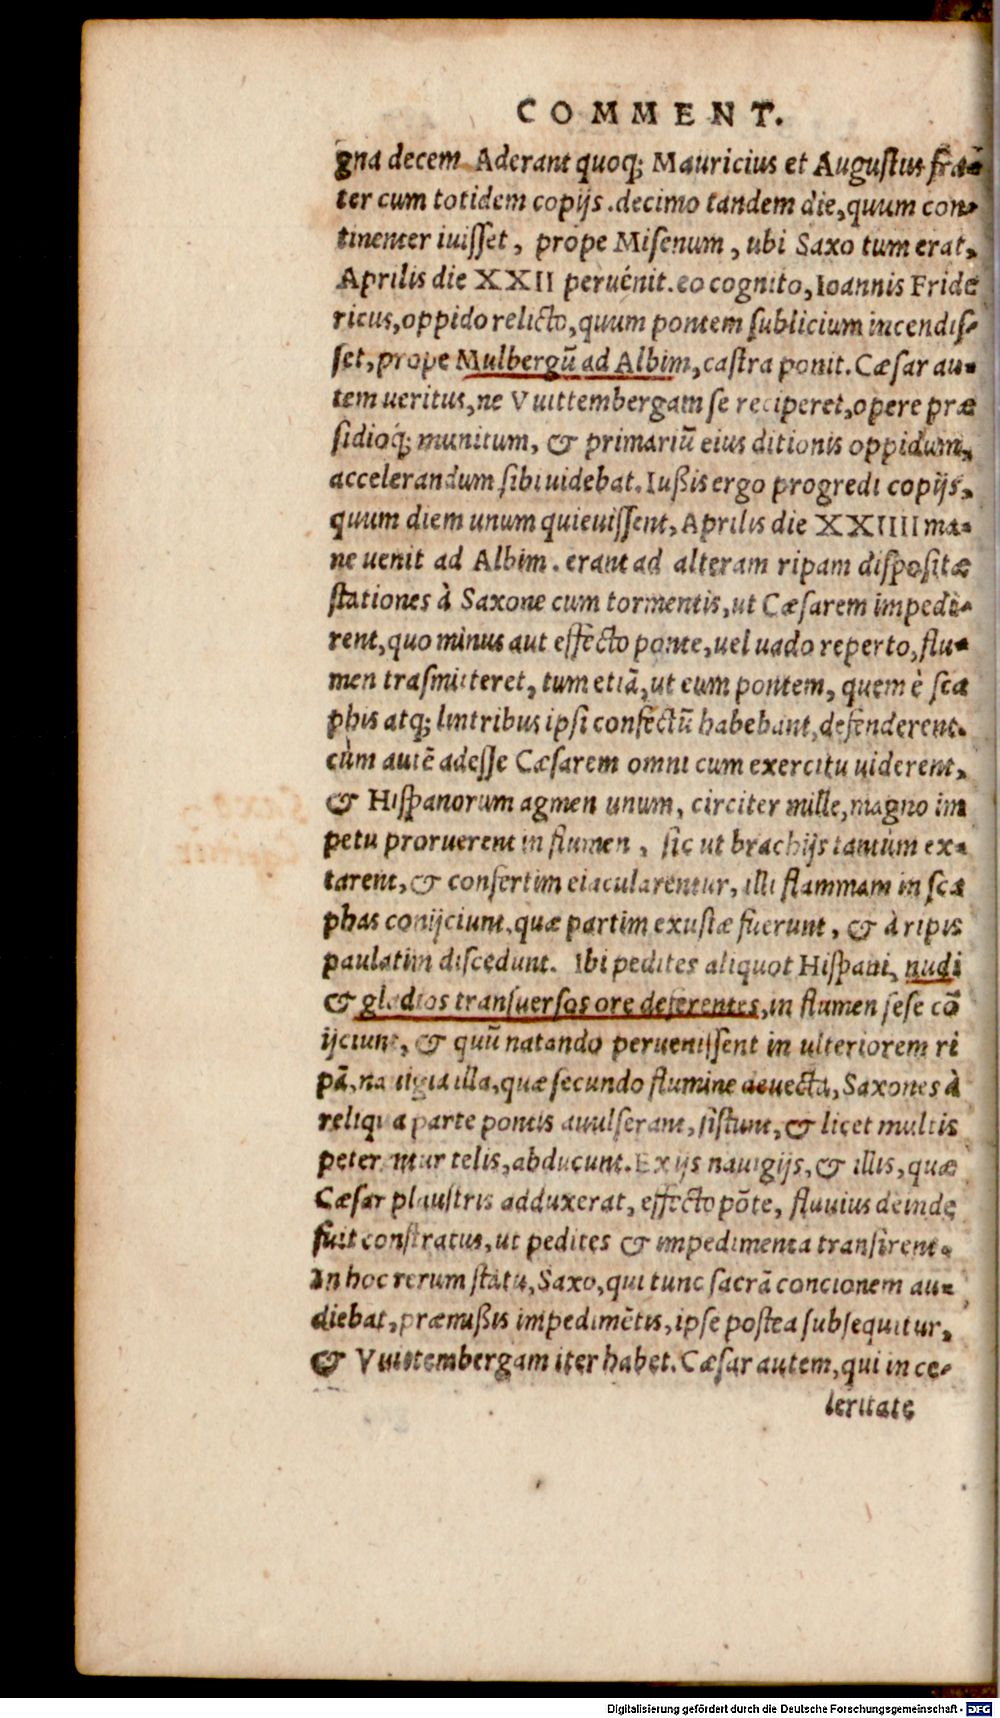 COMMENT.
gna decem. Aderant quoq; Mauricius et Augustus fra-
ter cum totidem copijs. decimo tandem die, quum con-
tinenter iuisset, prope Misenum, ubi Saxo tum erat,
Aprilis die XXII peruênit. eo cognito, Ioannis Fride
ricus, oppido relicto, quum pontem sublicium incendis-
set, prope Mulbergũ ad Albim, castra ponit. Cæsar au-
tem ueritus, ne Vuittembergam se reciperet, opere præ
sidioq́; munitum, & primariũ eius ditionis oppidum,
accelerandum sibi uidebat. Iußis ergo progredi copijs,
quum diem unum quieuissent, Aprilis die XXIIII ma-
ne uenit ad Albim. erant ad alteram ripam dispositæ
stationes à Saxone cum tormentis, ut Cæsarem impedi-
rent, quo minus aut effecto ponte, uel uado reperto, flu-
men trasmitteret, tum etiã, ut eum pontem, quem è sca
phis atq; lintribus ipsi confectũ habebant, defenderent.
cùm autẽ adesse Cæsarem omni cum exercitu uiderent,
& Hispanorum agmen unum, circiter mille, magno im
petu proruerent in flumen, sic ut brachijs tantùm ex-
tarent, & confertim eiacularentur, illi flammam in sca
phas conijciunt, quæ partim exustæ fuerunt, & à ripis
paulatim discedunt. Ibi pedites aliquot Hispani, nudi
& gladios transuersos ore deferentes, in flumen sese cõ
ijciunt, & quũ natando peruenissent in ulteriorem ri
pã, nauigia illa, quæ secundo flumine deuecta, Saxones à
reliqua parte pontis auulserant, sistunt, & licet multis
peterentur telis, abducunt. Ex ijs nauigijs, & illis, quæ
Cæsar plaustris adduxerat, effecto põte, fluuius deinde
fuit constratus, ut pedites & impedimenta transirent.
In hoc rerum statu, Saxo, qui tunc sacrã concionem au-
diebat, præmißis impedimẽtis, ipse postea subsequitur,
& Vuittembergam iter habet. Cæsar autem, qui in ce-
leritate
Digitalisierung gefördert durch die Deutsche Forschungsgemeinschaft - DFG